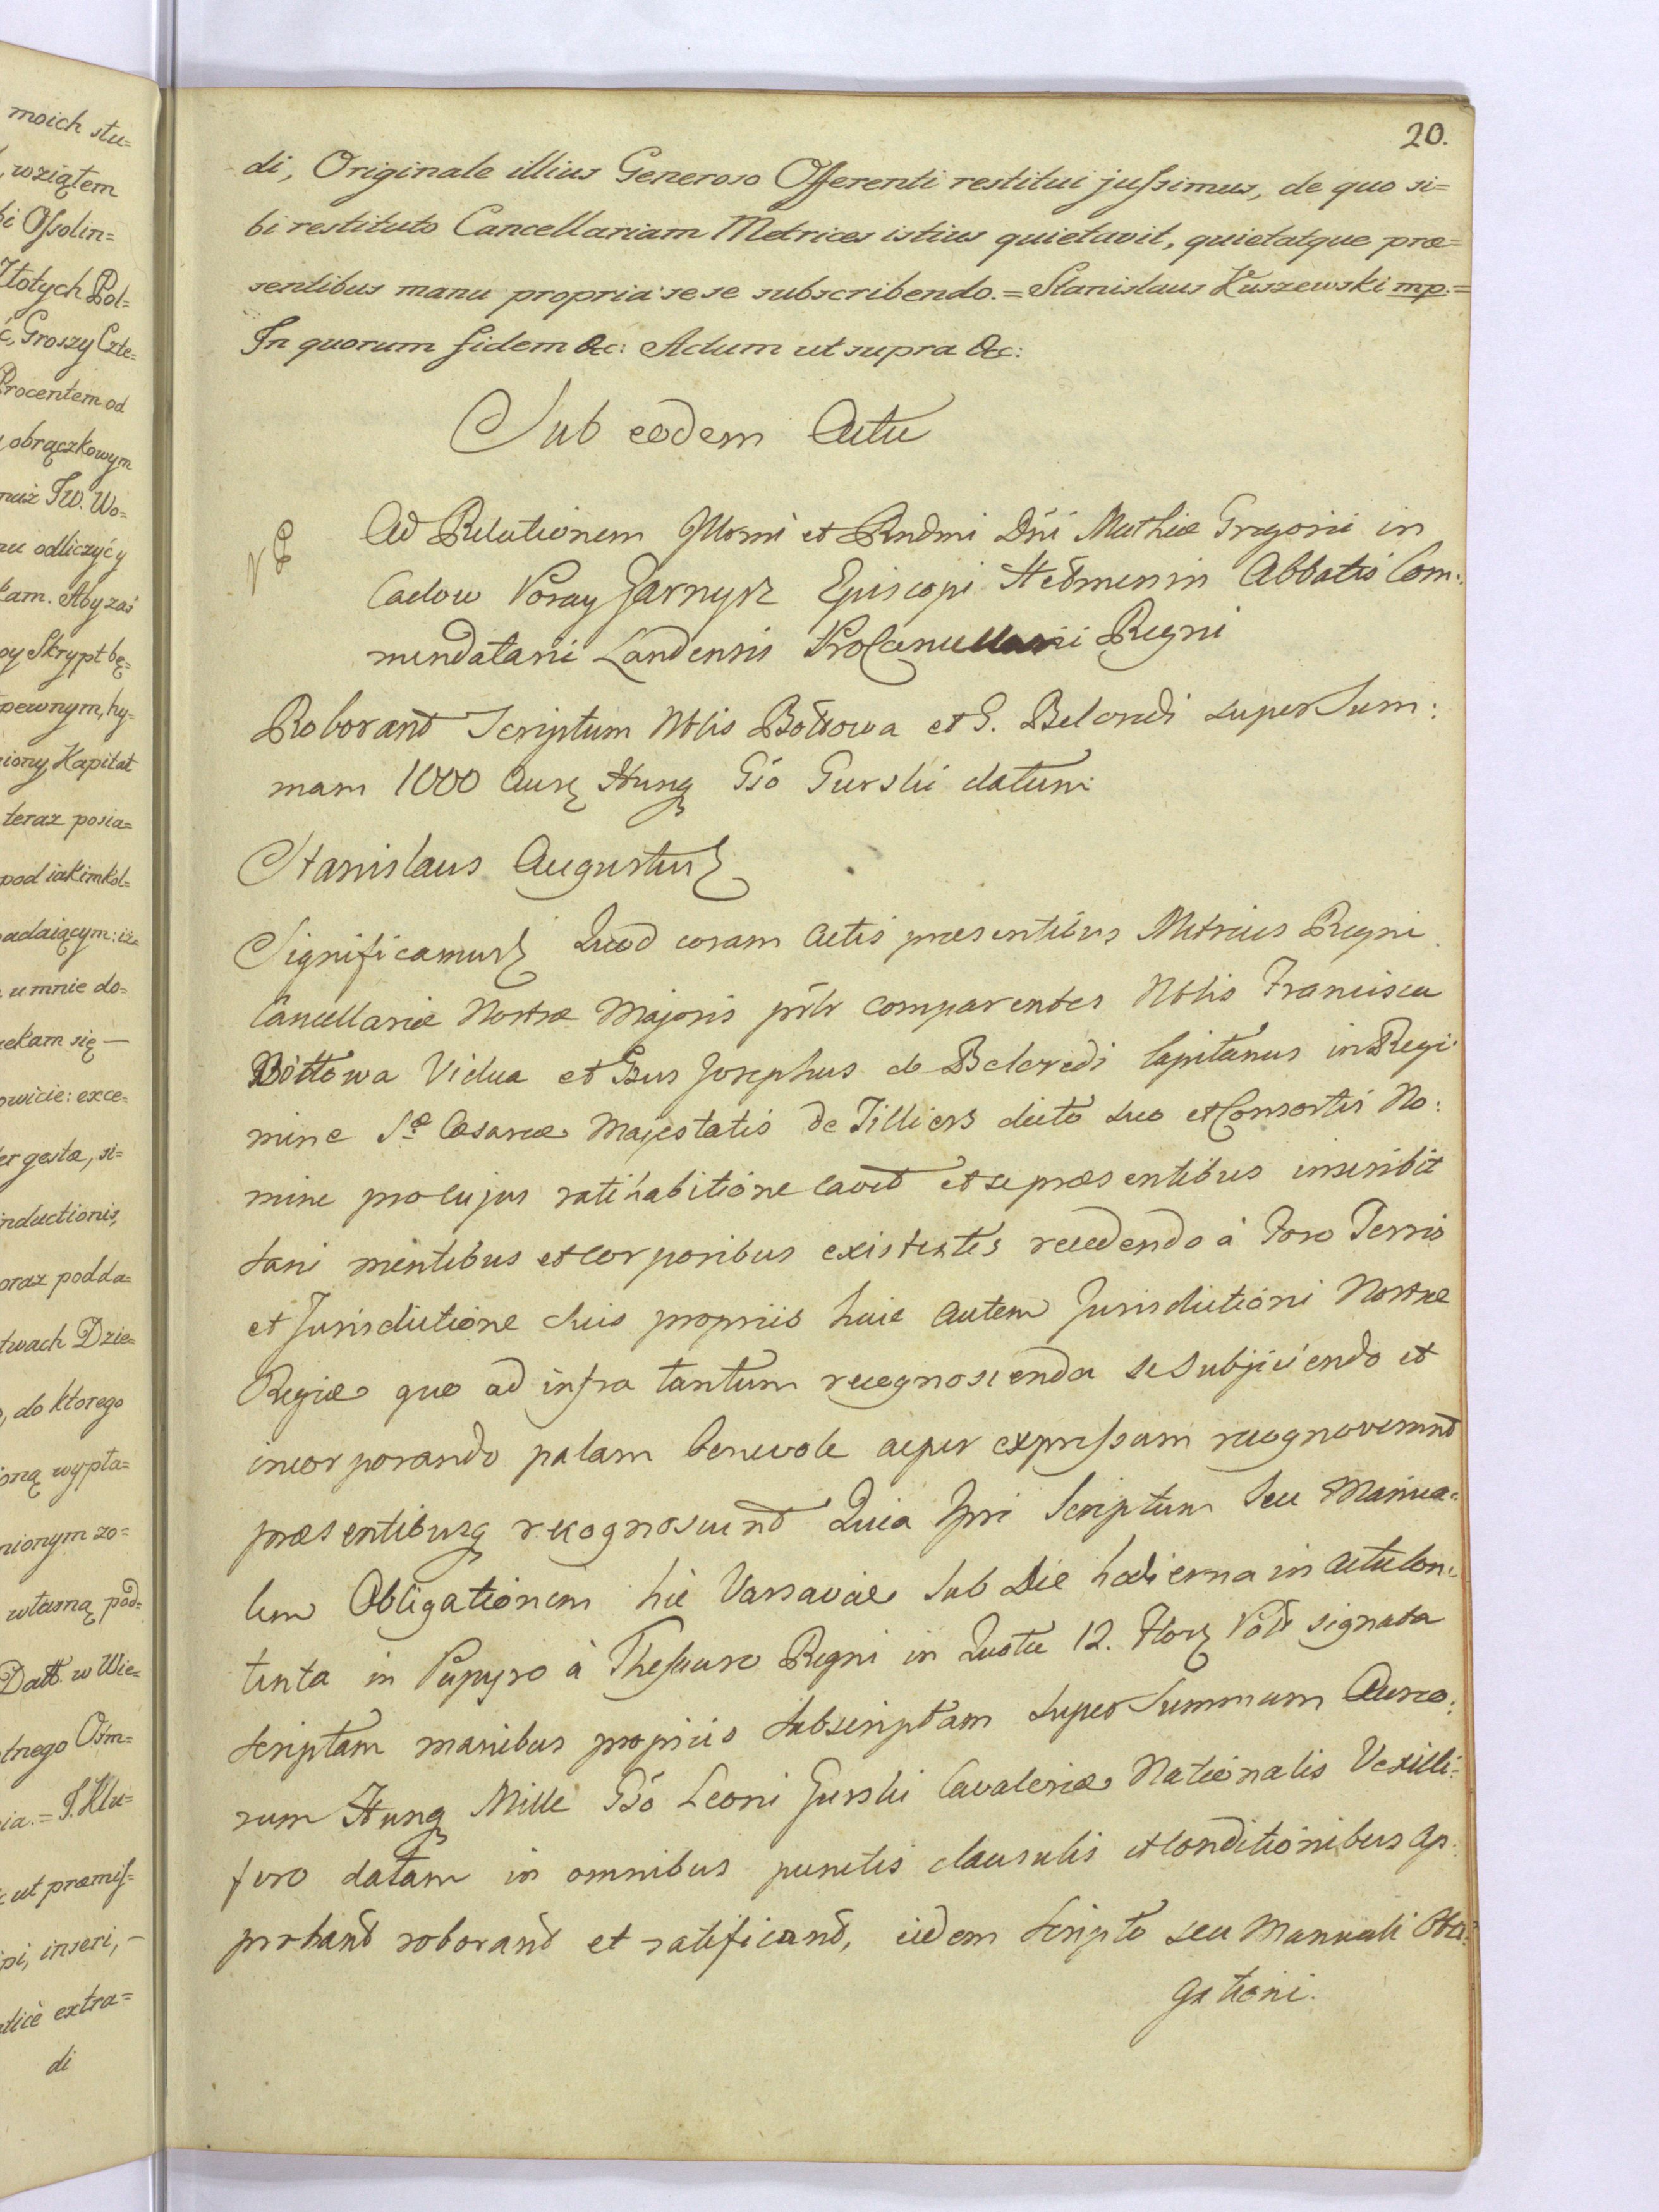 moich stu=
wziątem
ki Ossolin=
Złotych Pol=
ć, Groszy Czte=
Procentem od
obrączkowym
nuż JW. Wo=
nu odliczyć y
kam. Aby zaś
py Skrypt bę=
pewnym, hy=
iony Kapitał
teraz posia=
pod iakimkol=
adaiącym: iż=
u mnie do=
ekam się —
owicie: exce=
er gesta, si=
inductionis,
oraz podda=
twach Dzie=
, do ktorego
oną wypła=
nionym zo=
własną pod=
Datt. w Wie=
tnego Osm=
ia. = J. Klu=
ut præmiss=
pi, inseri, —
ticè extra=
di
20.
di, Originale illius Generoso Offerenti restitui jussimus, de quo si=
bi restituto Cancellariam Metrices istius quietavit, quietatque præ=
sentibus manu propria sese subscribendo. = Stanislaus Kuszewski mp. =
In quorum fidem &c: Actum ut supra &c:
Sub eodem Actu
Ad Relationem Illmi et Rndmi Dñi Mathiæ Gregorii in
Cadow Poray Garnysz Episcopi Abbatis Com:
mendatarii Landensis ProCancellarii Regni
Roborand Scriptum Nblis Bottowa et G. Belcredi super Sum:
mam 1000 Aur Hung Gso Gurski datum
Stanislaus Augustus
Significamus Quod coram Actis præsentibus Metrices Regni
Cancellariæ Nostræ Majoris prlr comparentes Nblis Francisca
Bottowa Vidua et Gsus Josephus de Belcredi Capitanus in Regi:
mine Sæ Cæsareæ Majestatis de Tilliers dicto suo et Consortis No:
mine pro cujus ratihabitione cavet et se præsentibus inscribit
sani mentibus et corporibus existentes recedendo à Foro Terris
et Jurisdictione suis propriis huic autem Jurisdictioni Nostræ
Regiæ quo ad infra tantum recognoscenda se subjiciendo et
incorporando palam benevole acper expressum recognoverunt
præsentibusq recognoscunt Quia Ipsi Scriptum Seu Manua=
lem Obligationem hic Varsaviæ sub Die hodierna in Actu Con:
tenta in Papyro à Thesauro Regni in Quota 12. Flor Pol signata
scriptam manibus propriis subscriptam super Summam Aureo:
rum Hung Mille Gso Leoni Gurski Cavaleriæ Nationalis Vexilli:
fero datam in omnibus punctis clausulis et Conditionibus ap:
proband roborand et ratificand, eidem Scripto seu Manuali Obli:
gationi.